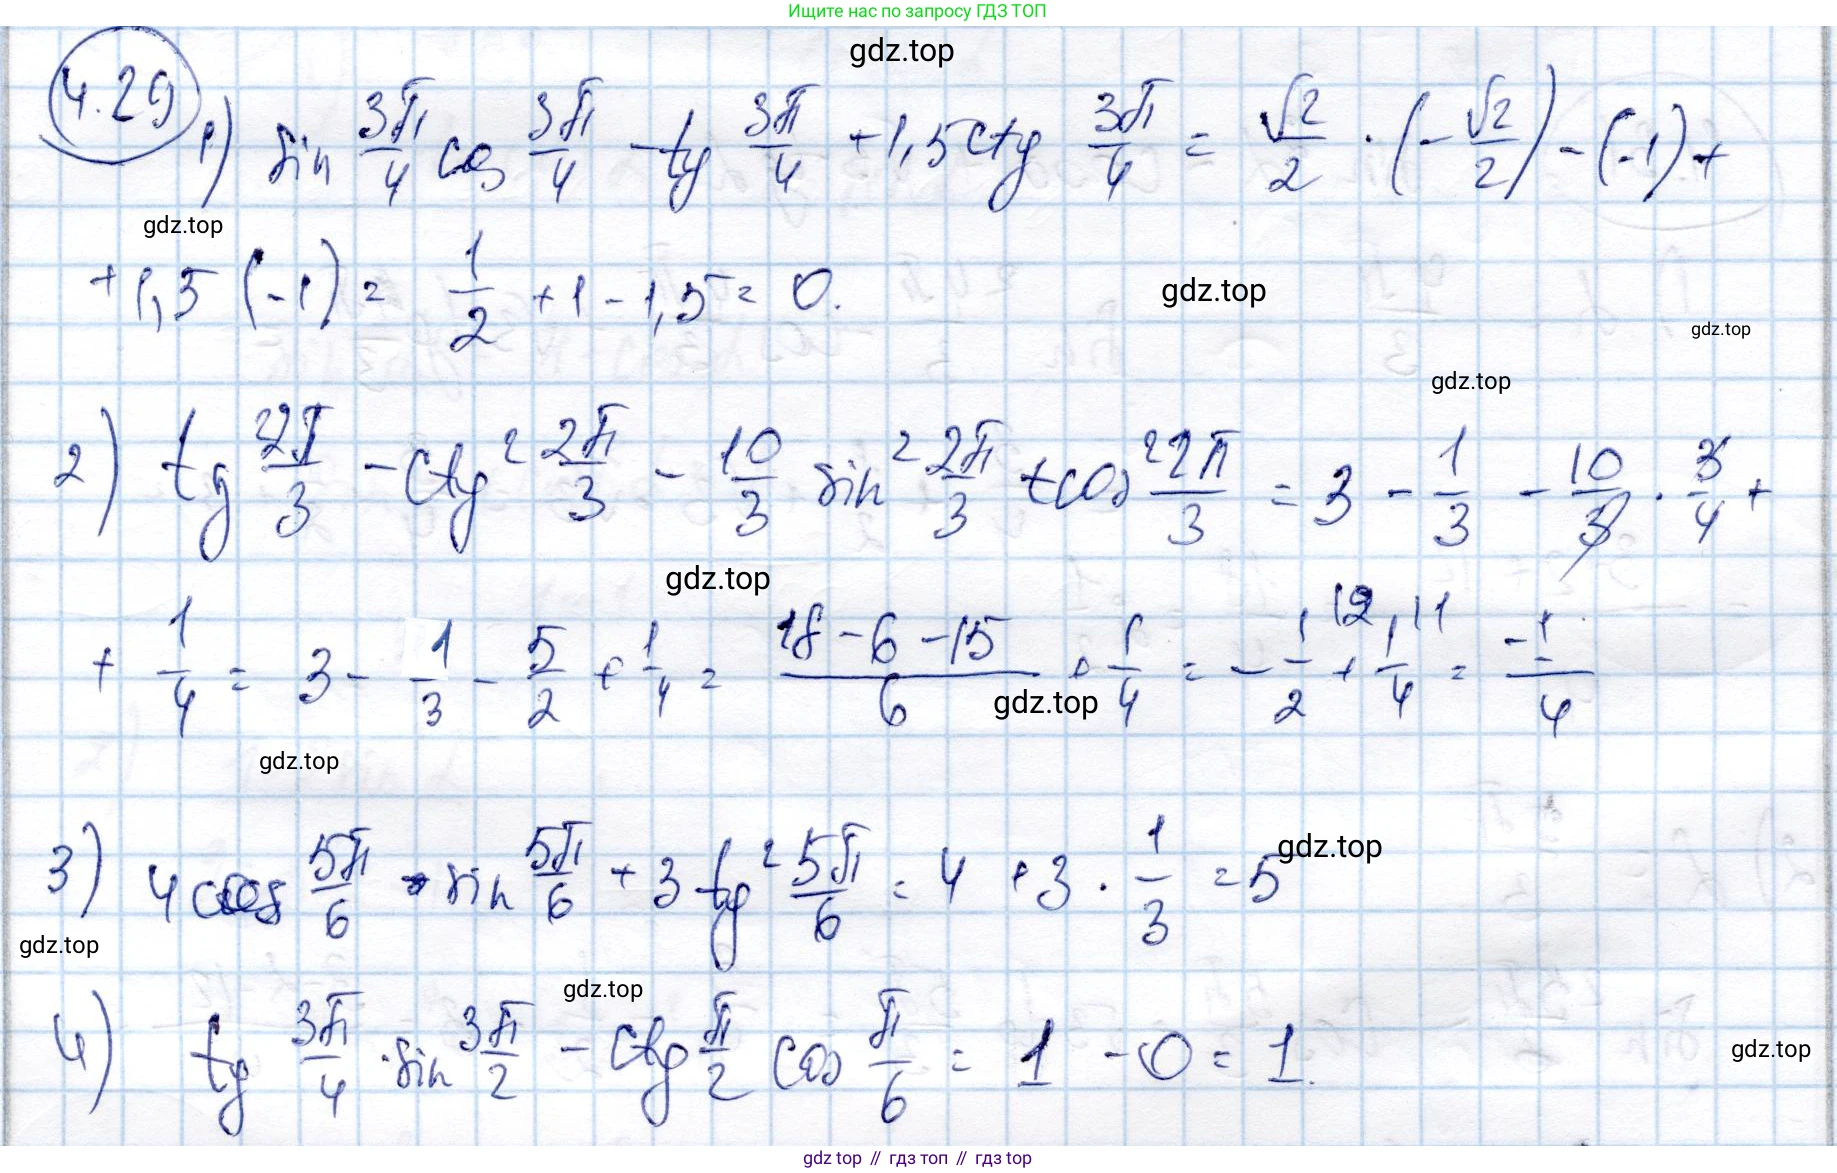 Ищите нас по запросу ГДЗ ТОП
gdz.top
4.29
1) sin 3π/4 cos 3π/4 - tg 3π/4 + 1,5 ctg 3π/4 = √2/2 · (-√2/2) - (-1) +
gdz.top
+ 1,5 (-1) = 1/2 + 1 - 1,5 = 0.
gdz.top
gdz.top
gdz.top
2) tg² 2π/3 - ctg² 2π/3 - 10/3 sin² 2π/3 + cos² 2π/3 = 3 - 1/3 - 10/3 · 3/4 +
gdz.top
+ 1/4 = 3 - 1/3 - 5/2 + 1/4 = (18 - 6 - 15)/6 + 1/4 = -1/2 + 1/4 = -1/4
gdz.top
gdz.top
3) 4 cos 5π/6 · sin 5π/6 + 3 tg² 5π/6 = 4 + 3 · 1/3 = 5
gdz.top
gdz.top
gdz.top
4) tg 3π/4 · sin 3π/2 - ctg π/2 cos π/6 = 1 - 0 = 1.
gdz.top
gdz.top // гдз топ // гдз top